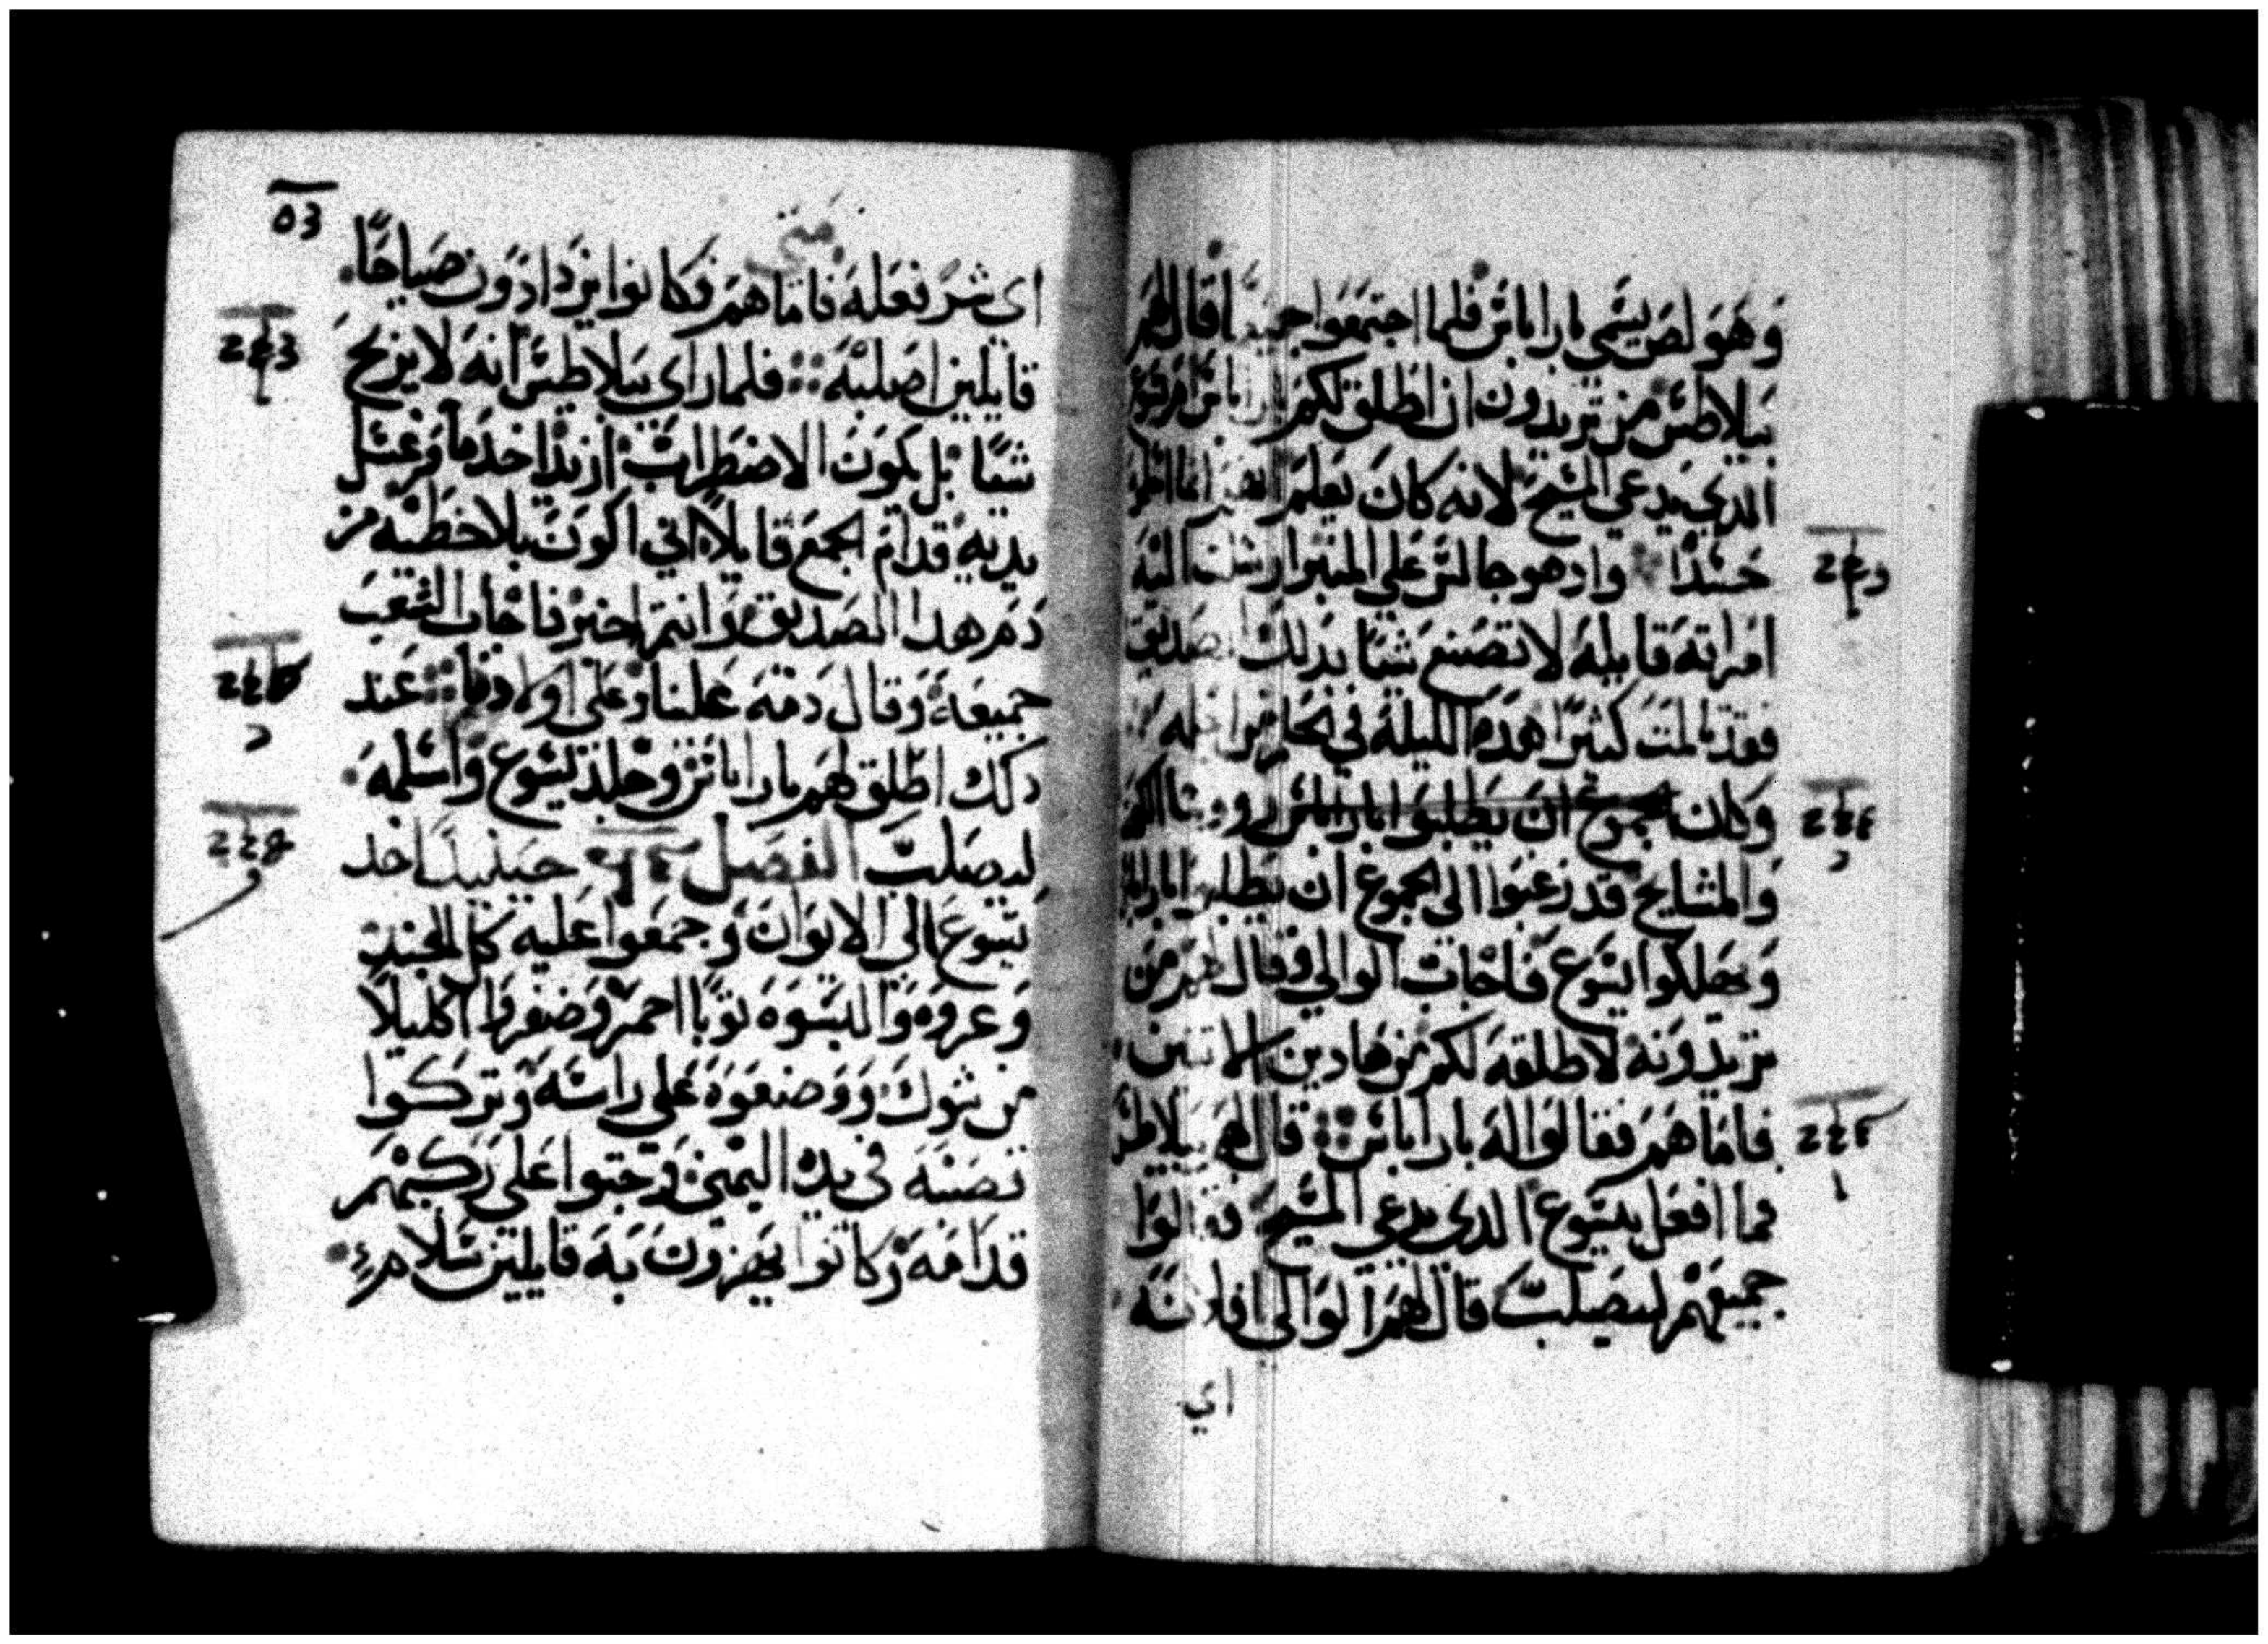 وهو لص يسمى باراباس فلما اجتمعوا جميعا قال لهم
بيلاطس من تريدون ان اطلق لكم باراباس ام يسوع
الدي يدعي المسيح لانه كان يعلم انهم انما اسلموه
حسدا وادهو جالس علي المنبر ارسلت اليه
امراته قايله لا تصنع شيا بدلك الصديق
فقد تالمت كثيرا هده الليلة في الحلم من اجله
وكان الجموع ان يطلبوا باراباس روسا الكهنه
والمشايخ قد رغبوا الى الجموع ان يطلبوا باراباس
ويهلكوا يسوع فاجاب الوالي وقال لهم من
تريدونه لاطلقه لكم من هادين الاتنين
فاما هم فقالوا له باراباس قال لهم بيلاطس
فما افعل بيسوع الدي يدعي المسيح فقالوا
جميعهم ليصلب قال لهم الوالي افلانه
اي
متي
اي شر فعله فاما هم فكانوا يزدادون صياحا
قايلين اصلبه فلما راي بيلاطس انه لا يربح
شيا بل يكون الاضطراب ازيد اخد ما وغسل
يديه قدام الجمع قايلا اني اكون بلا خطيه من
دم هدا الصديق وانتم اخبر فاجاب الشعب
جميعه وقال دمه علينا وعلى اولادنا عند
دلك اطلق لهم باراباس وجلد يسوع واسلمه
ليصلب الفصل حينيدا اخد
يسوع الي الايوان وجمعوا عليه كل الجند
وعروه والبسوه توبا احمر وضفروا اكليلا
من شوك ووضعوه علي راسه وتركوا
قصبه في يده اليمني وجتوا على ركبهم
قدامه وكانوا يهزون به قايلين سلام